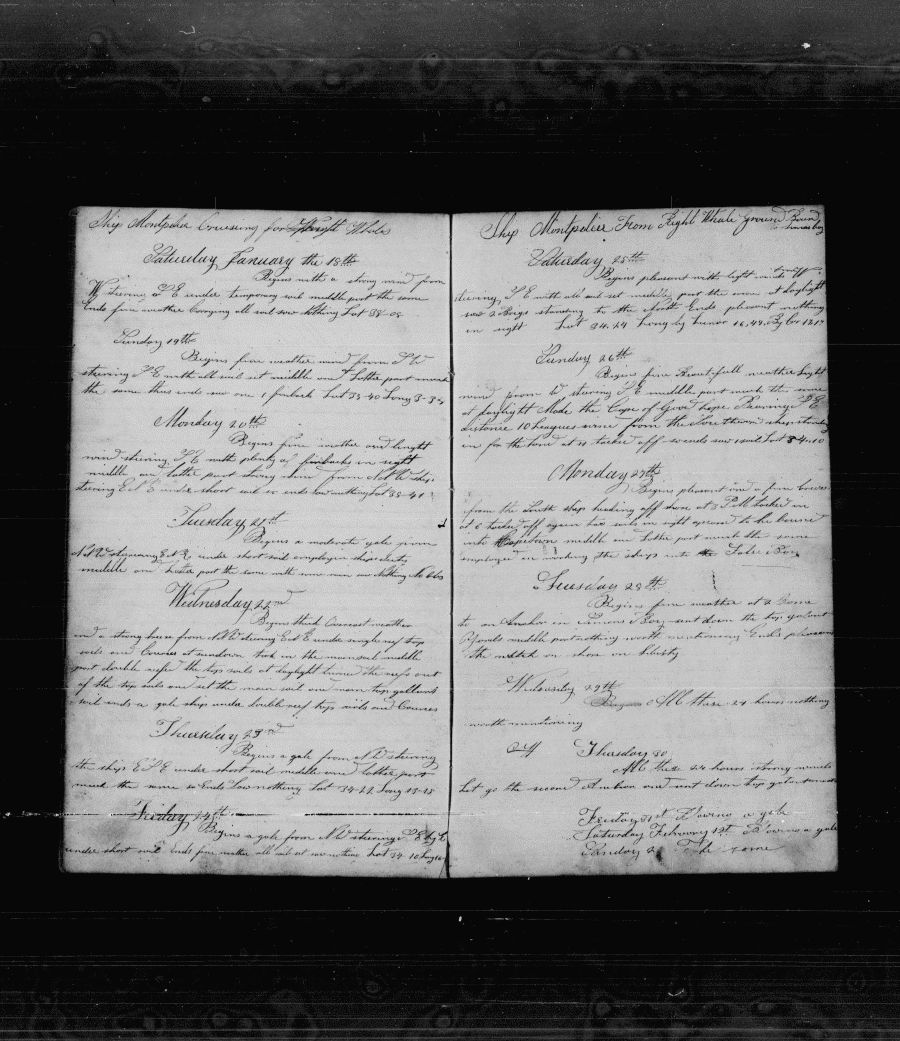 Ship Montpelier Cruising for Whale
Saturday January the 18th
Begins with a strong wind from
W Steering S E under temporary sail middle part the same
Ends fine weather Carrying all sail saw nothing Lat 38-05
Sunday 19th
Begins fine weather wind from S W
steering S E with all sail set middle and Latter part much
the same thus ends saw one finback Lat 35-40 Long
Monday 20th
Begins fine weather and
wind steering S E with plenty of finbacks in sight
middle and latter part strong wind from N W ship
steering E S E under short sail so ends saw nothing Lat 35-41
Tuesday 21st
Begins a moderate gale from
N W steering E S E under short sail employed in ships duty
middle and Latter part the same with some rain saw Nothing No Obs
Wednesday 22nd
Begins thick Overcast weather
and a strong breeze from N W steering E S E under single reef top
sails and Courses at sundown took in the mainsail middle
part double reefed the top sails at daylight turned the reefs out
of the top sails and set the main sail and main top gallant
sail ends a gale ship under double reef top sails and Courses
Thursday 23rd
Begins a gale from N W steering
the ship E S E under short sail middle and latter part
much the same so Ends Saw nothing Lat 34-22 Long 13-15
Friday 24th
Begins a gale from N W steering S E by E
under short sail ends fine weather all sail set saw nothing Lat 34-10 Long
Ship Montpelier From Right Whale ground Bound
homeward
Saturday 25th
Begins pleasant with light winds W
steering S E with all sail set middle part the same at daylight
saw 2 Brigs standing to the North Ends pleasant nothing
in sight Lat 34.24 Long by Lunar 16,49 By
Sunday 26th
Begins fine Beautifull weather Light
wind from W steering S E middle part much the same
at daylight Made the Cape of Good hope Bearing S E
distance 10 leagues wind from the Southern ship standing
in for the land at 11 tacked off so ends saw 1 sail Lat 34-10
Monday 27th
Begins pleasant and a fine breeze
from the South ship heading off shore at 3 P M tacked in
at 6 tacked off again two sails in sight appeared to be bound
into Capetown middle and Latter part much the same
employed in working the ship into the False Bay
Tuesday 28th
Begins fine weather at 2 Came
to an Anchor in Simons Bay sent down the top galant
Yards middle part nothing worth mentioning Ends pleasant
the watch on shore on liberty
Wednesday 29th
All these 24 hours nothing
worth mentioning
Thursday 30
All these 24 hours strong winds
Let go the second Anchor and sent down top galant masts
Friday 31st Blowing a gale
Saturday February 1st Blowing a gale
Sunday 2 The same